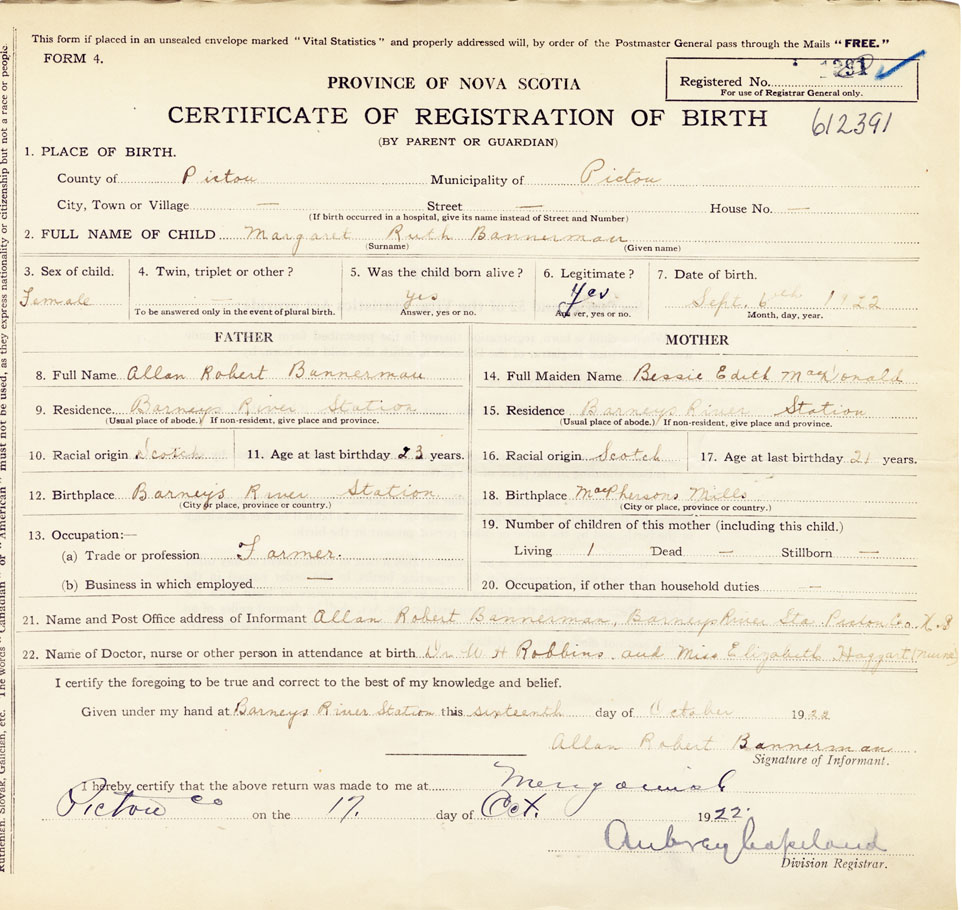 This form if placed in an unsealed envelope marked "Vital Statistics" and properly addressed will, by order of the Postmaster General pass through the Mails "FREE."
FORM 4.
PROVINCE OF NOVA SCOTIA
Registered No.
For use of Registrar General only.
CERTIFICATE OF REGISTRATION OF BIRTH
612391
(BY PARENT OR GUARDIAN)
1. PLACE OF BIRTH.
County of Pictou Municipality of Pictou
City, Town or Village — Street — House No. —
(If birth occurred in a hospital, give its name instead of Street and Number)
2. FULL NAME OF CHILD Margaret Ruth Bannerman
(Surname) (Given name)
3. Sex of child. 4. Twin, triplet or other? 5. Was the child born alive? 6. Legitimate? 7. Date of birth.
Female — yes Yes Sept. 6th 1922
To be answered only in the event of plural birth. Answer, yes or no. Answer, yes or no. Month, day, year.
FATHER MOTHER
8. Full Name Allan Robert Bannerman 14. Full Maiden Name Bessie Edith MacDonald
9. Residence Barneys River Station 15. Residence Barneys River Station
(Usual place of abode.) If non-resident, give place and province. (Usual place of abode.) If non-resident, give place and province.
10. Racial origin Scotch 11. Age at last birthday 23 years. 16. Racial origin Scotch 17. Age at last birthday 21 years.
12. Birthplace Barney's River Station 18. Birthplace MacPhersons Mills
(City or place, province or country.) (City or place, province or country.)
19. Number of children of this mother (including this child.)
13. Occupation:—
(a) Trade or profession Farmer. Living 1 Dead — Stillborn —
(b) Business in which employed — 20. Occupation, if other than household duties —
21. Name and Post Office address of Informant Allan Robert Bannerman, Barneys River Sta Pictou Co. N.S
22. Name of Doctor, nurse or other person in attendance at birth Dr. A H Robbins and Miss Elizabeth Haggart (Nurse)
I certify the foregoing to be true and correct to the best of my knowledge and belief.
Given under my hand at Barneys River Station this sixteenth day of October 1922
Allan Robert Bannerman
Signature of Informant.
I hereby certify that the above return was made to me at Merigomish
Pictou Co on the 17. day of Oct. 1922.
Aubrey Copeland
Division Registrar.
Ruthenian, Slovak, Galician, etc. The words "Canadian" or "American" must not be used, as they express nationality or citizenship but not a race or people.